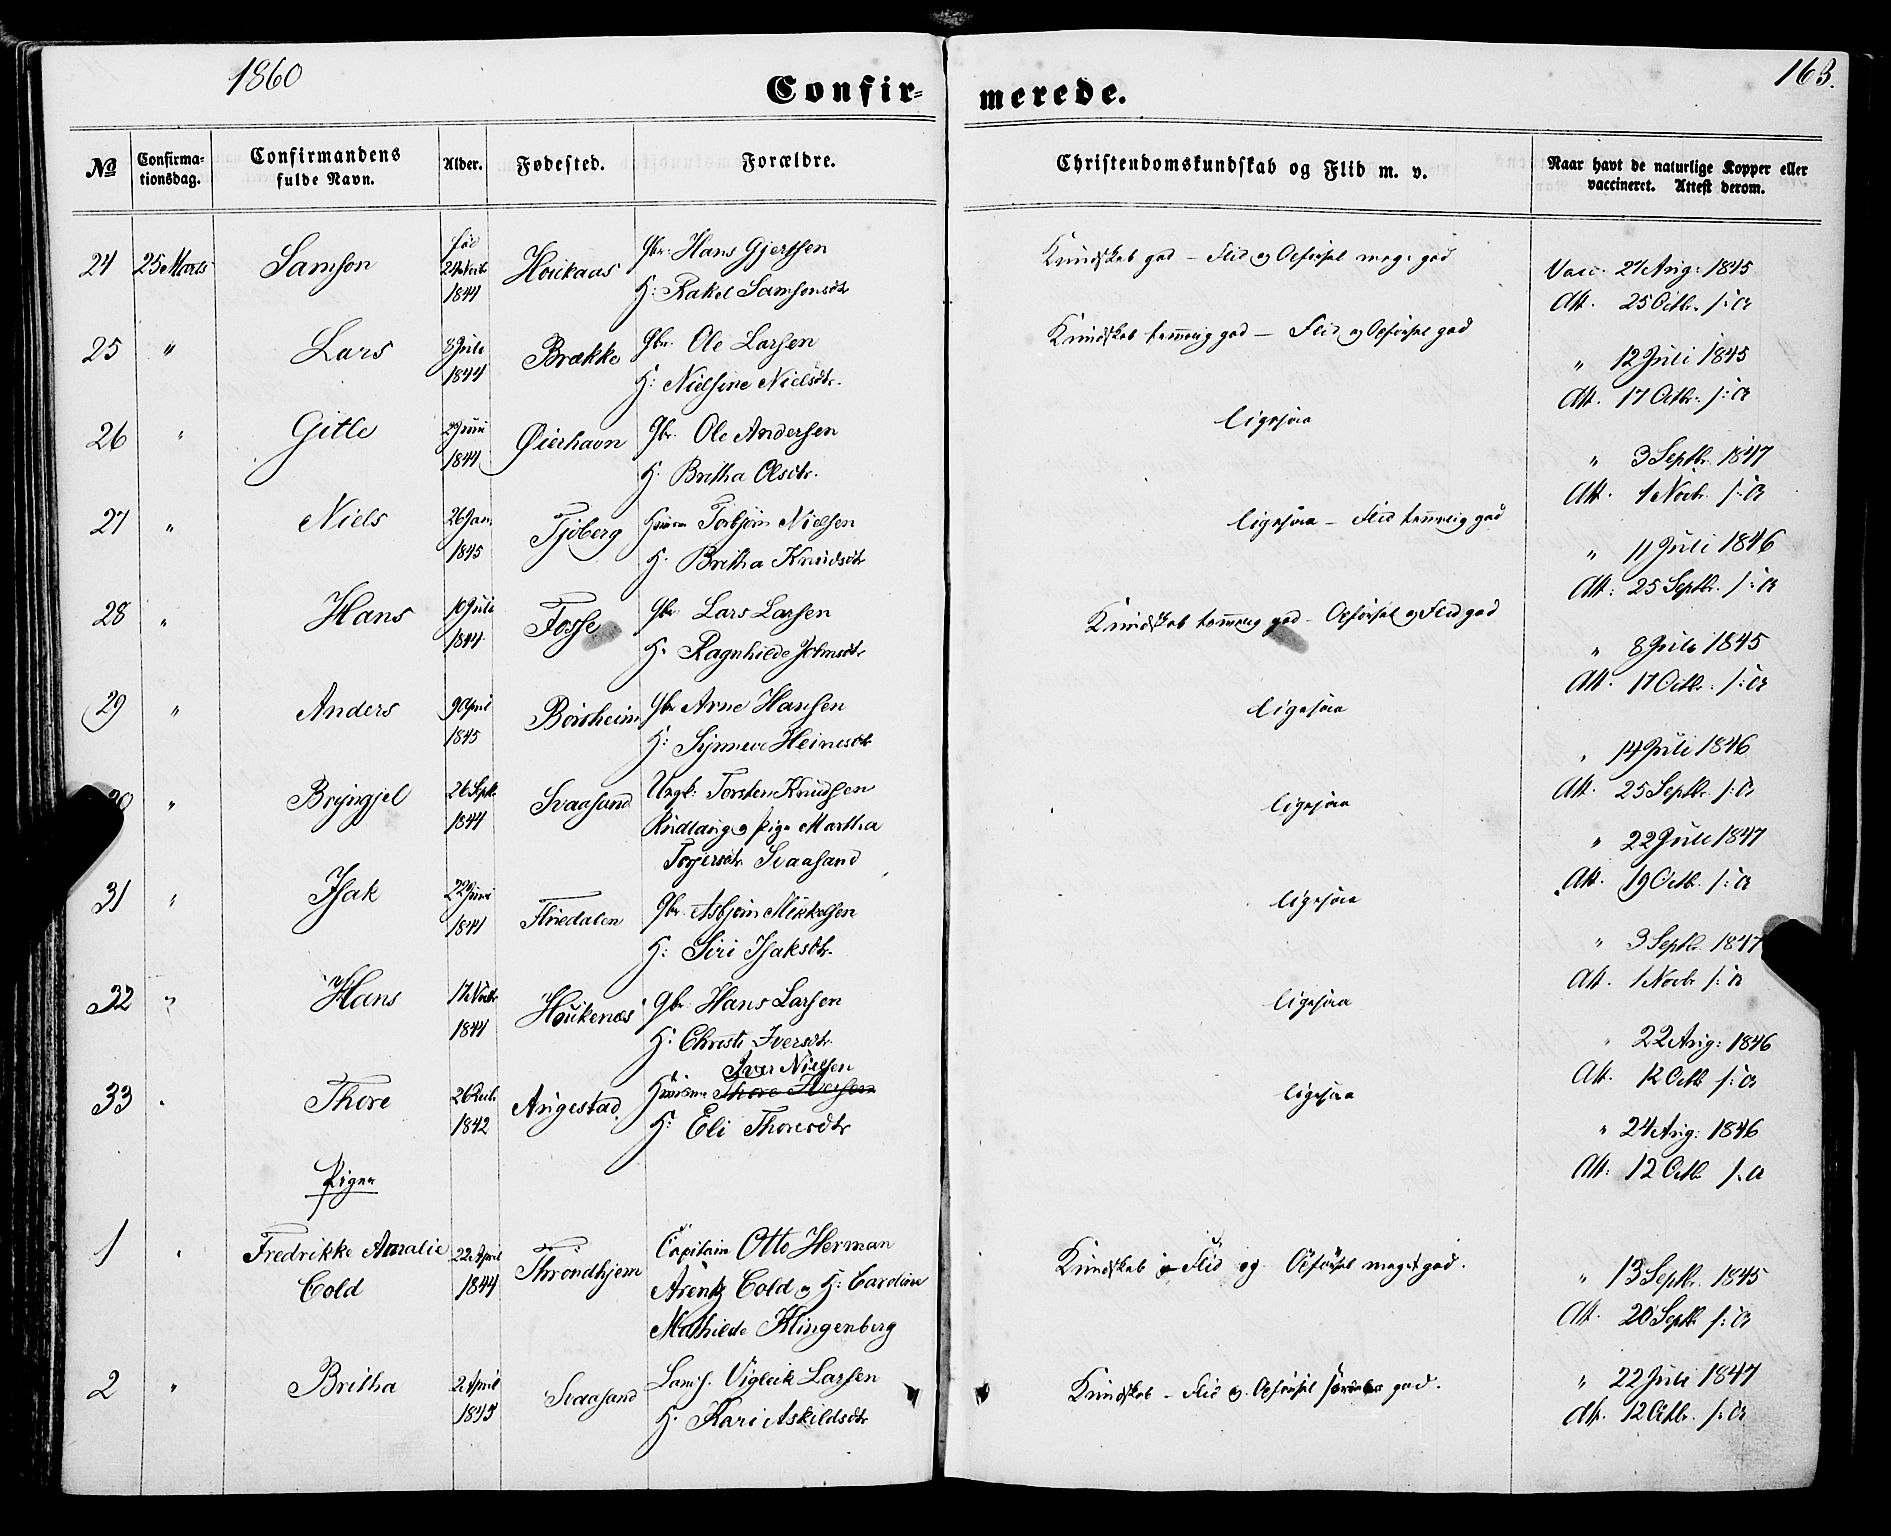 1860
Confir-
merede.
163.
No
Confirma-
tionsdag.
Confirmandens
fulde Navn.
Alder.
Fødested.
Forældre.
Christendomskundskab og Flid m. v.
Naar havt de naturlige Kopper eller
vaccineret. Attest derom.
24 25 Marts Samson 1844 Houkaas Gbr. Hans Gjertsen
H: Rakel Samsonsdtr
Kundskab god – Flid og Opførsel meget god
Vacc. 27 Aug: 1845
Att. 25 Octbr. s: A
25 " Lars 8 Juli 1844 Brække Gbr. Ole Larsen
H: Nielsine Nielsdtr.
Kundskab temmelig god – Flid og Opførsel god
" 12 Juli 1845
Att. 17 Octbr. s: A
26 " Gitle 1844 Øierhavn Gbr. Ole Andersen
H. Britha Olsdtr.
ligesaa
" 3 Septbr. 1847
Att. 1 Novb. s: A
27 " Niels 26 Jan. 1845 Tjoberg Huusm Torbjørn Nielsen
H. Britha Knudsdtr
ligesaa – Flid temmelig god
" 11 Juli 1846
Att: 25 Septbr. s: A
28 " Hans 10 Juli 1844 Fosse Gbr. Lars Larsen
H. Ragnhilde Johnsdtr
Kundskab temmelig god – Opførsel og Flid god
" 8 Juli 1845
Att. 17 Octbr. s: A
29 " Anders 9 April 1845 Børsheim Gbr Arne Hansen
H: Synneve Heinesdtr
ligesaa
" 14 Juli 1846
Att. 25 Septbr. s: A
30 " Bryngjel 26 Septbr. 1844 Svaasand Ungk: Torsten Knudsen
og Pige Martha
Torgersdtr. Svaasand
ligesaa
" 22 Juli 1847
Att. 19 Octb. s: A
31 " Isak 22 Juni 1844 Gbr. Asbjørn Mikkelsen
H: Siri Isaksdtr.
ligesaa
" 3 Septbr. 1847
Att. 1 Novbr s: A
32 " Hans 17 Novbr 1844 Houkenæs Gbr. Hans Larsen
H. Christi Iversdtr.
ligesaa
" 22 Aug: 1846
Att. 12 Octb s: A
33 " Thore 26 Decb. 1842 Augestad Huusm Iver Nielsen
Thore Iversen
H: Eli Thoresdtr
ligesaa
" 24 Aug: 1846
Att: 12 Octb s. A
Piger
1 " Fredrikke Amalie
Cold
22 April 1844 Throndhjem Capitain Otto Herman
Arentz Cold og H: Caroline
Mathilde Klingenberg
Kundskab Flid og Opførsel meget god.
" 13 Septbr. 1845
Att. 20 Septb s: A
2 " Britha 2 April 1845 Svaasand Vigleik Larsen
H. Kari Askildsdtr
Kundskab – Flid og Opførsel god.
" 22 Juli 1847
Att. 12 Octbr. s: A